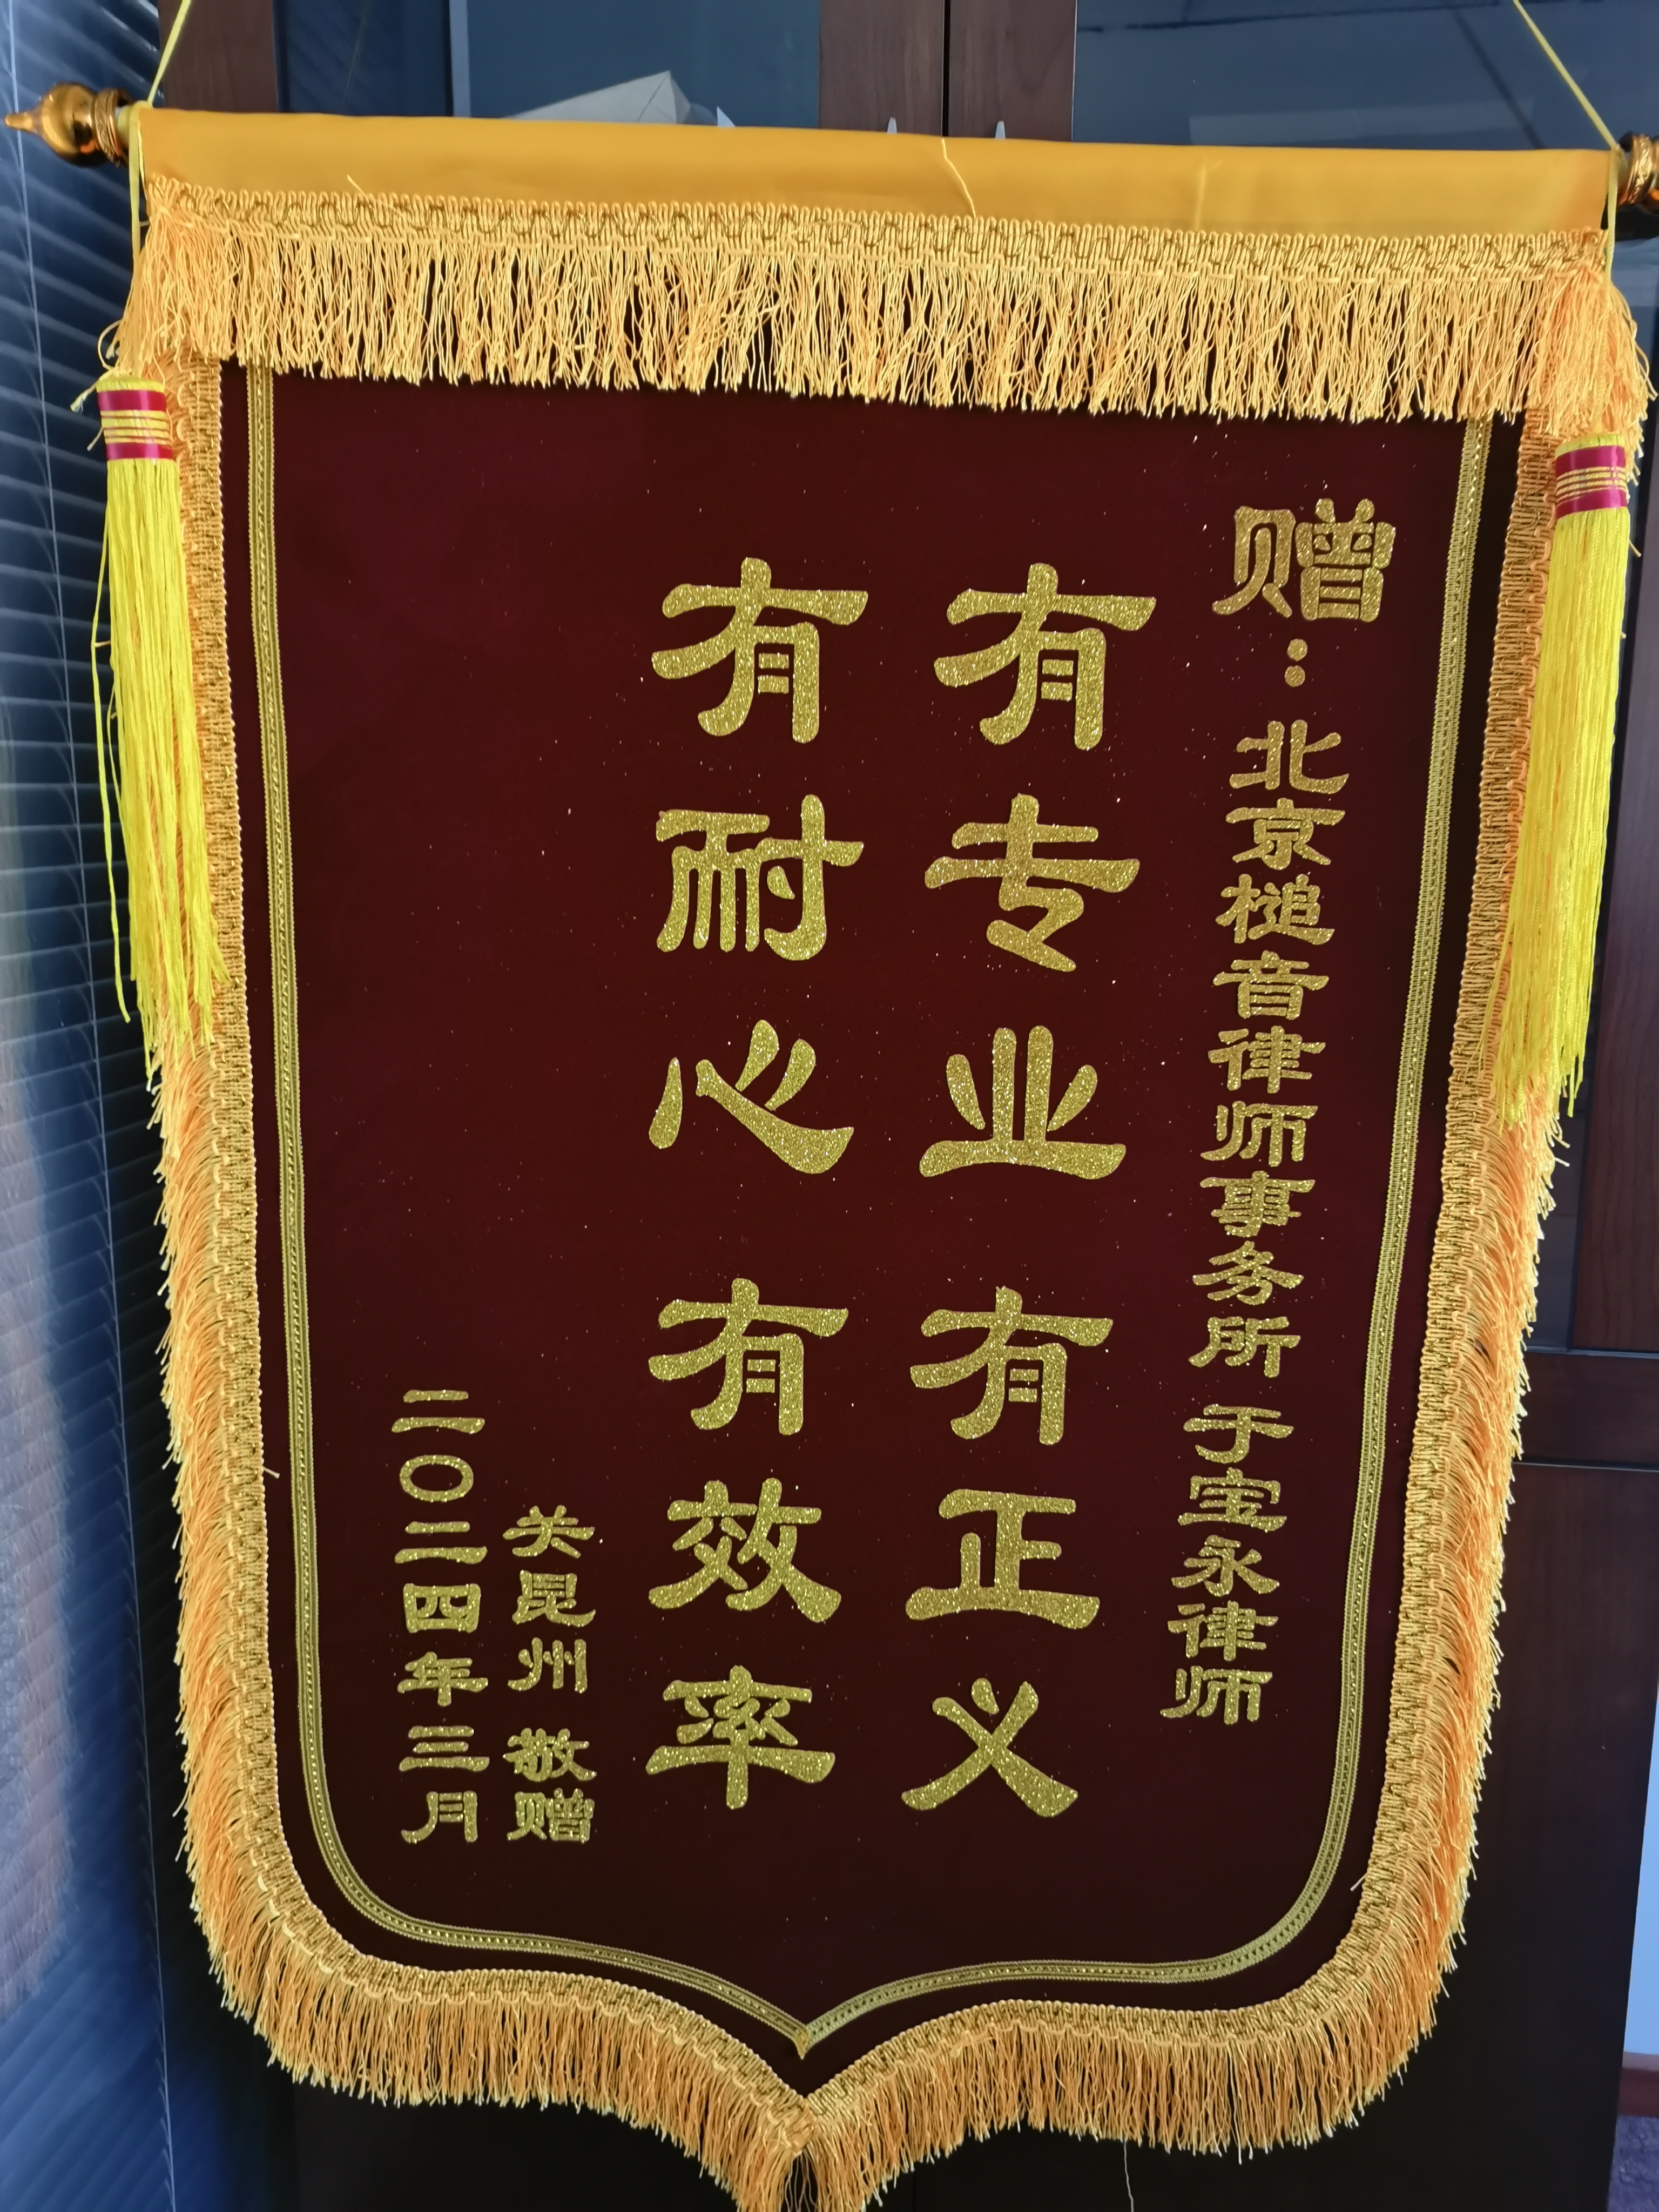 赠：北京槌音律师事务所 于宝永律师
有专业 有正义
有耐心 有效率
关昆州 敬赠
二〇二四年三月